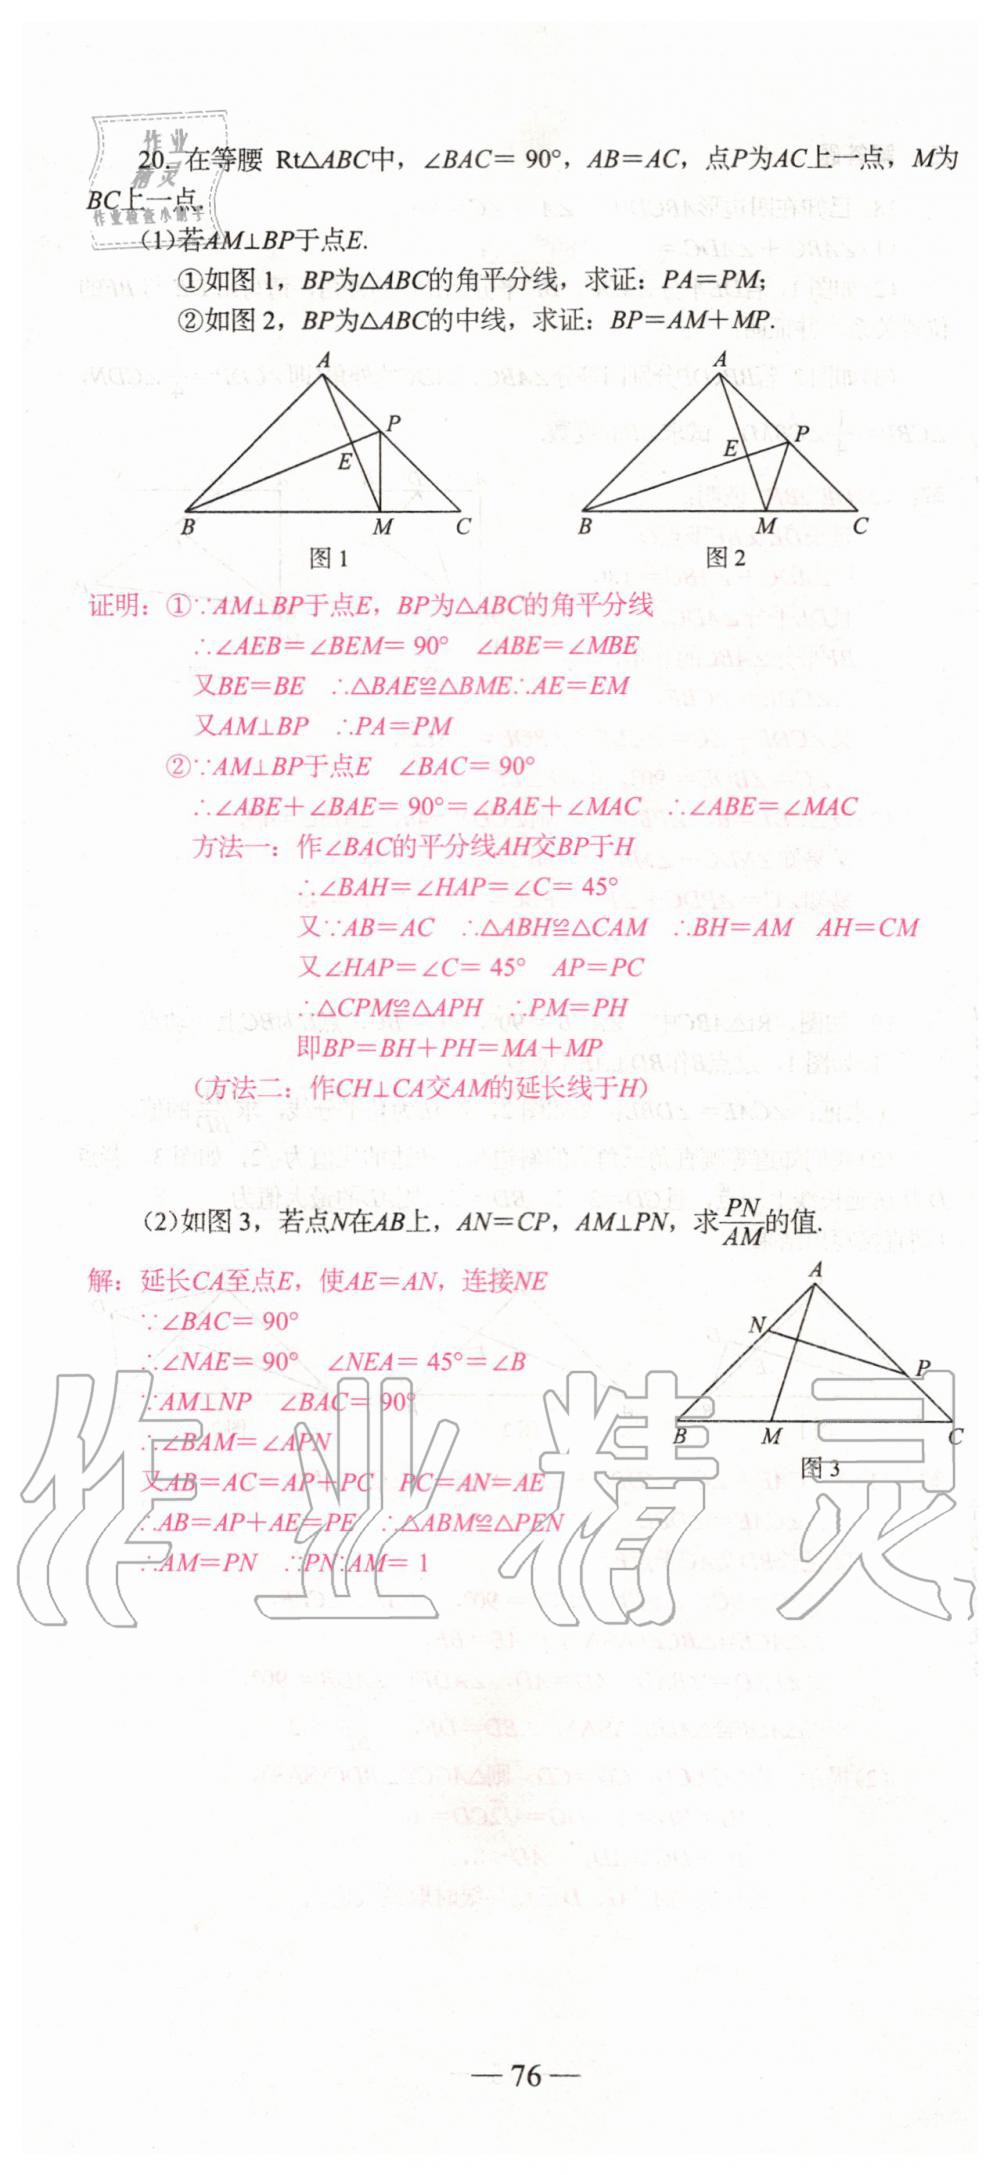 作业
精灵
作业检查小助手
20. 在等腰 Rt△ABC中，∠BAC= 90°，AB=AC，点P为AC上一点，M为
BC上一点.
(1)若AM⊥BP于点E.
①如图 1，BP为△ABC的角平分线，求证：PA=PM；
②如图 2，BP为△ABC的中线，求证：BP=AM+MP.
A
P
E
B
M
C
图 1
A
E
P
B
M
C
图 2
证明：①∵AM⊥BP于点E，BP为△ABC的角平分线
∴∠AEB=∠BEM= 90° ∠ABE=∠MBE
又BE=BE ∴△BAE≌△BME∴AE=EM
又AM⊥BP ∴PA=PM
②∵AM⊥BP于点E ∠BAC= 90°
∴∠ABE+∠BAE= 90°=∠BAE+∠MAC ∴∠ABE=∠MAC
方法一：作∠BAC的平分线AH交BP于H
∴∠BAH=∠HAP=∠C= 45°
又∵AB=AC ∴△ABH≌△CAM ∴BH=AM AH=CM
又∠HAP=∠C= 45° AP=PC
∴△CPM≌△APH ∴PM=PH
即BP=BH+PH=MA+MP
(方法二：作CH⊥CA交AM的延长线于H)
(2)如图 3，若点N在AB上，AN=CP，AM⊥PN，求PN/AM的值.
解：延长CA至点E，使AE=AN，连接NE
∵∠BAC= 90°
∴∠NAE= 90° ∠NEA= 45°=∠B
∵AM⊥NP ∠BAC= 90°
∴∠BAM=∠APN
又AB=AC=AP+PC PC=AN=AE
∴AB=AP+AE=PE ∴△ABM≌△PEN
∴AM=PN ∴PN∶AM= 1
A
N
P
B
M
C
图 3
作业精灵
— 76 —